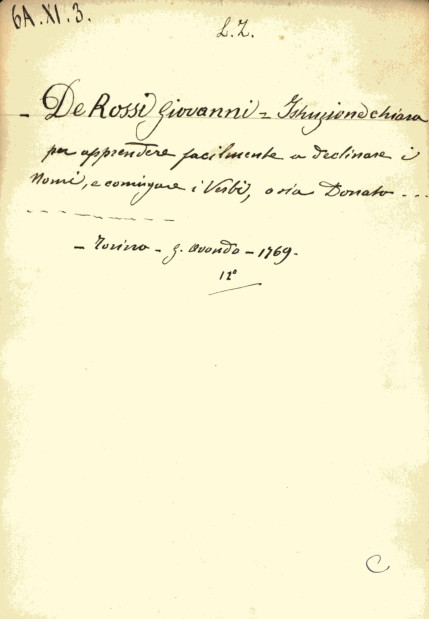 6A.XI.3.
L.Z.
- De Rossi Giovanni = Istruzione chiara
per apprendere facilmente a declinare i
Nomi, e coniugare i Verbi, o sia Donato - - -
- - - - - - - - -
- Torino - G. Avondo - 1769.
12°
C